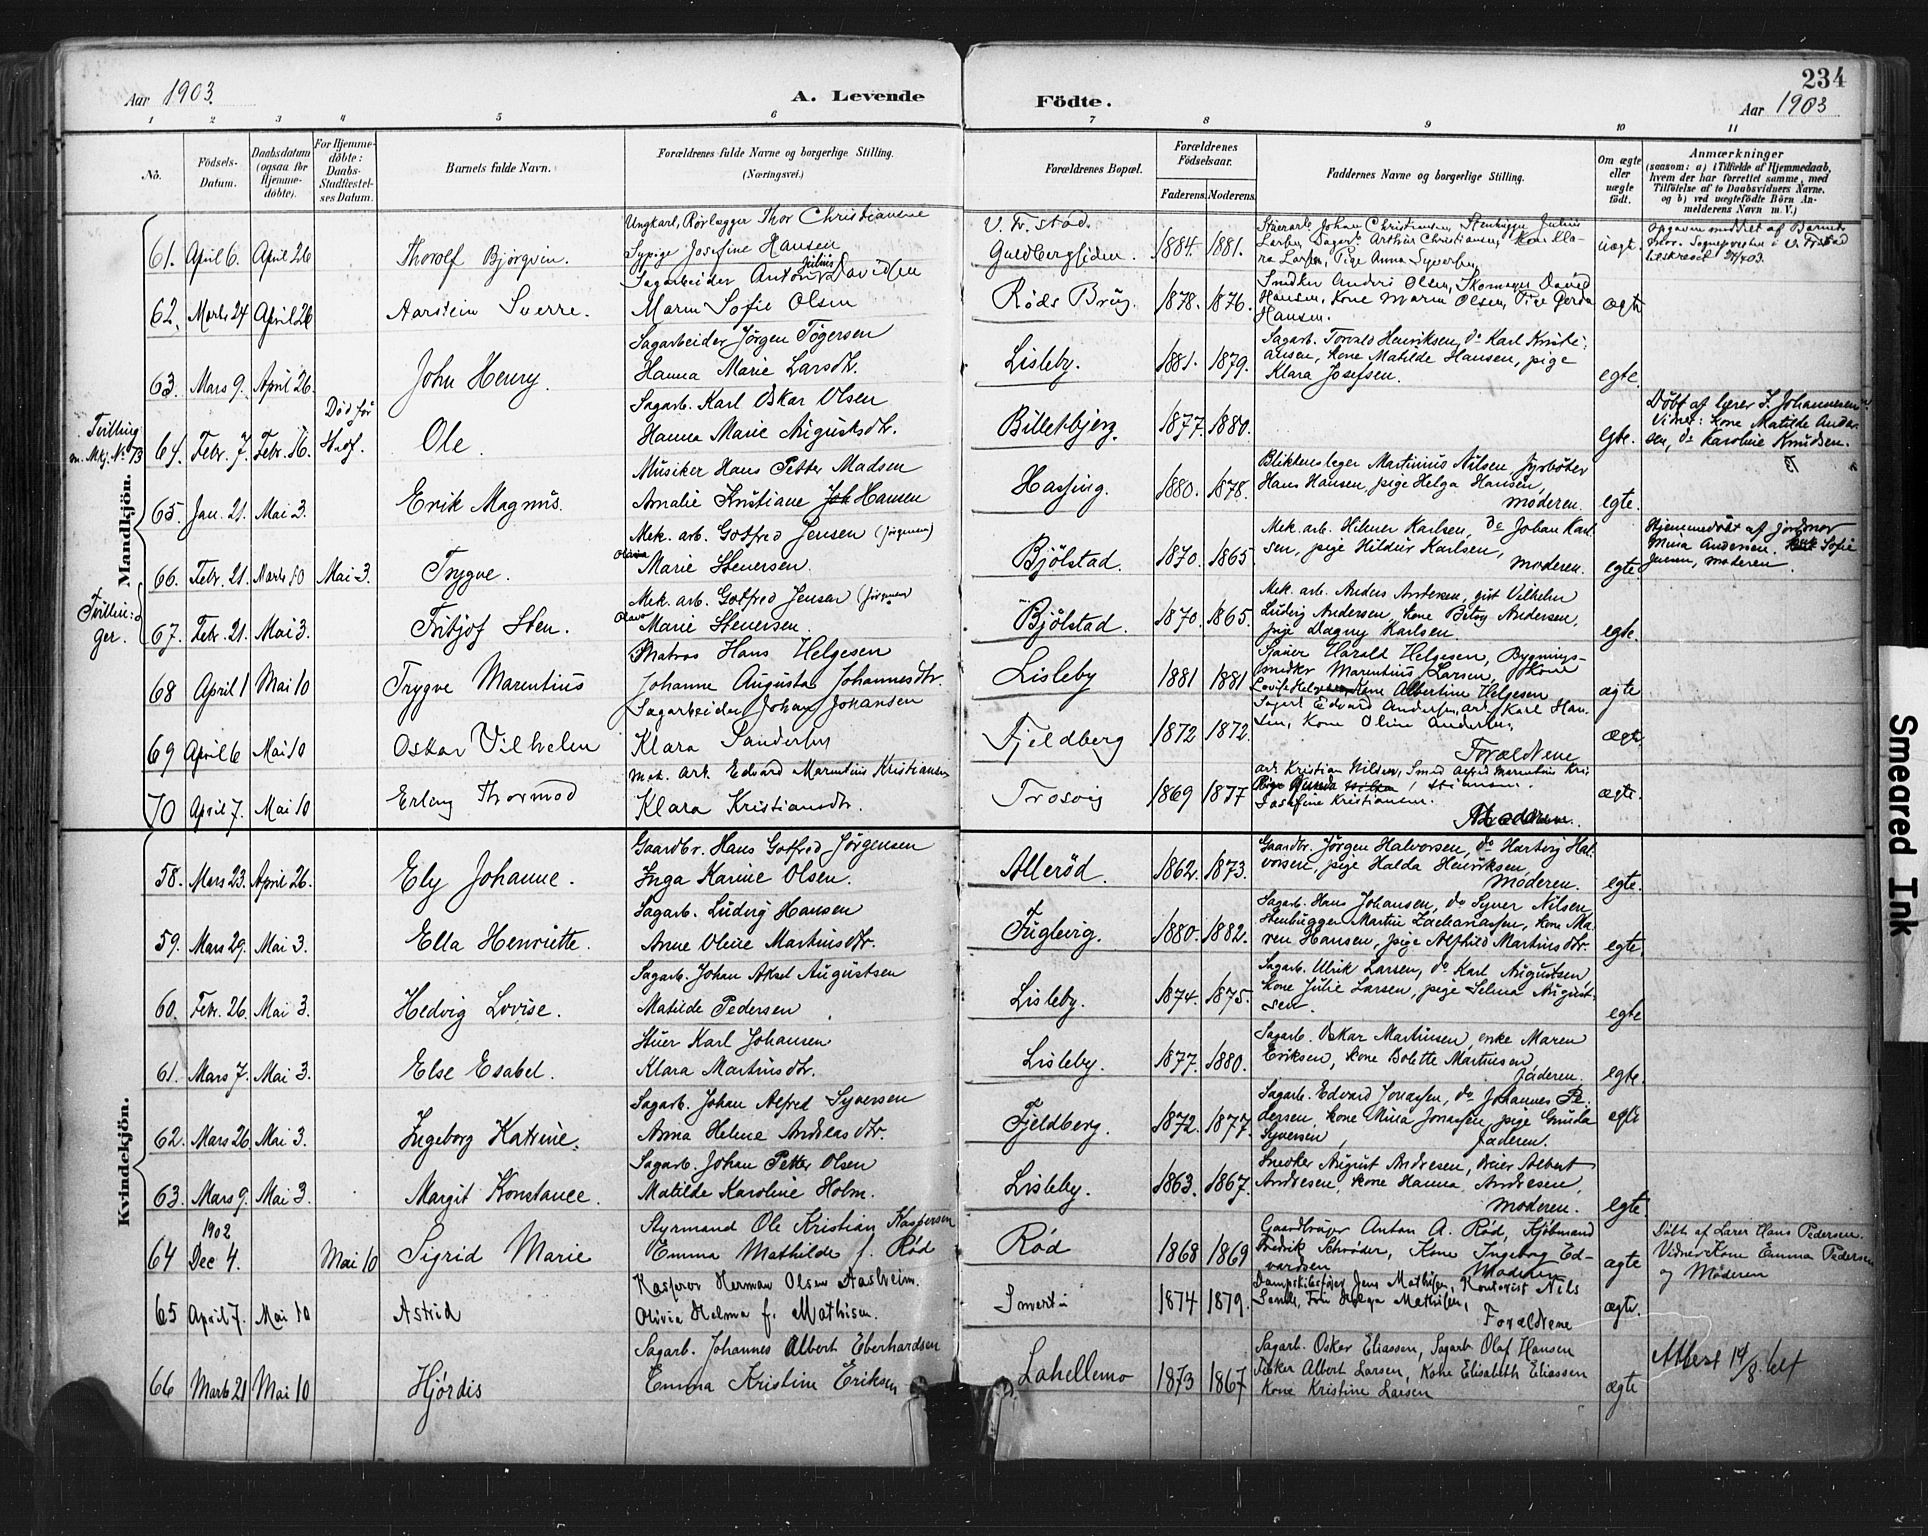 234
Aar 1903.
A. Levende
Födte.
Aar 1903
1 2 3 4 5 6 7 8 9 10 11
No.
Födsels-Datum.
Daabsdatum (ogsaa för Hjemmedöbte).
For Hjemmedöbte: Daabs-Stadfæstelses Datum.
Barnets fulde Navn.
Forældrenes fulde Navne og borgerlige Stilling.
(Næringsvei.)
Forældrenes Bopæl.
Forældrenes Födselsaar.
Faderens. Moderens.
Faddernes Navne og borgerlige Stilling.
Om ægte eller uægte födt.
Anmærkninger
(saasom: a) i Tilfælde af Hjemmedaab, hvem der har forrettet samme, med Tilföielse af to Daabsvidners Navne. og b) ved uægtefödte Börn Anmelderens Navn m. V.)
Mandkjön.
61. April 6. April 26 Thorolf Björgvin.
Ungkarl, Rörlægger Thor Christiansen
Sypige Josefine Hansen
V. Fr.stad.
Guldbergsiden. 1884. 1881. uægt.
62. Marts 24 April 26 Aarstein Sverre.
Sagarbeider Anton Julius Davidsen
Maren Sofie Olsen
Röds Brug. 1878. 1876.
Snedker Anders Olsen, Skomager David
Hansen, Kone Maren Olsen, Pige Gerda
Hansen. ægte
63. Mars 9. April 26. John Henry.
Sagarbeider Jörgen Tögersen
Hanna Marie Larsdtr.
Lisleby. 1881. 1879.
Sagarb. Torvald Henriksen, do Karl Kristi-
ansen, kone Matilde Hansen, pige
Klara Josefsen. egte.
Tvilling
m. Mkj. No 73
64. Febr. 7. Febr. 16. Död før Stadf. Ole.
Sagarb. Karl Oskar Olsen
Hanna Marie Augustsdtr.
Billetbjerg. 1877. 1880. egte.
Döbt af lærer J. Johannesen
Vidner: kone Matilde Ander-
sen, do Karoline Knudsen.
65. Jan. 21. Mai 3. Erik Magnus.
Musiker Hans Petter Madsen
Amalie Kristiane Hansen
Hassing. 1880. 1878.
Blikkenslager Martinius Nilsen, fyrböter
Hans Hansen, pige Helga Hansen,
moderen. egte.
Tvillin-
ger.
66. Febr. 21. Marts 10 Mai 3. Trygve.
Mek. arb. Gotfred Jensen (Jörgensen)
Olava Marie Stenersen.
Bjölstad. 1870. 1865.
Mek. arb. Hilmer Karlsen, do Johan Karl-
sen, pige Hildur Karlsen,
moderen. egte
Hjemmedöbt af Jordmor
Mina Andersen. Sofie
Jensen, moderen.
67. Febr. 21. Mai 3. Fritjof Sten.
Mek. arb. Gotfred Jensen (Jörgensen)
Olava Marie Stenersen.
Bjölstad. 1870. 1865.
Mek. arb. Anders Andersen, gut Vilhelm
Ludvig Andersen, kone Betsy Andersen,
pige Dagny Karlsen. egte.
68 April 1 Mai 10 Trygve Marentius
Matros Hans Helgesen
Johanne Augusta Johannesdtr.
Lisleby 1881 1881
Harald Helgesen, Bygnings-
snedker Marentius Larsen, Kone
Albertine Helgesen ægte
69 April 6 Mai 10 Oskar Vilhelm
Sagarbeider Johan Johansen
Klara Sandersen
Fjeldberg 1872 1872.
Sagarb Edvard Andersen, arb Karl Han-
sen, Kone Oline Andersen,
Forældrene ægt.
70 April 7. Mai 10 Erling Thormod
Mek. Arb. Edvard Marentius Kristiansen
Klara Kristiansdtr.
Trosvig 1869 1877
arb Kristian Nilsen, Smed Alfred Marentius Kri-
stiansen.
Josefine Kristiansen. ægte.
Kvindekjön.
58. Mars 23. April 26. Ely Johanne.
Gaardbr. Hans Gotfred Jörgensen
Inga Karine Olsen.
Alleröd. 1862. 1873.
Gaardbr. Jörgen Halvorsen, do Hartvig Hal-
vorsen, pige Halda Henriksen,
Moderen. egte.
59. Mars 29. Mai 3. Ella Henriette.
Sagarb. Ludvig Hansen
Anne Oline Martinsdtr.
Fuglevig. 1880. 1882.
Sagarb. Hans Johansen, do Syver Nilsen,
Stenhugger Martin Zachariassen, kone Ma-
ren Hansen, pige Alfhild Martinsdtr. egte.
60. Febr. 26. Mai 3. Hedvig Lovise.
Sagarb. Johan Aksel Augustsen
Matilde Pedersen
Lisleby. 1874. 1875.
Sagarb. Ulrik Larsen, do Karl Augustsen,
kone Julie Larsen, pige Selma August-
sen. egte
61. Mars 7. Mai 3. Else Esabel.
Stuer Karl Johansen
Klara Martinsdtr.
Lisleby. 1877. 1880.
Sagarb. Oskar Martinsen, enke Maren
Eriksen, kone Bolette Martinsen,
faderen. egte.
62. Mars 26. Mai 3. Ingeborg Katrine.
Sagarb. Johan Alfred Syversen
Anna Helene Andreasdtr.
Fjeldberg. 1872. 1877.
Sagarb. Edvard Jonassen, do Johannes Pe-
dersen, kone Mina Jonassen, pige Gunda
Syversen, faderen. egte
63. Mars 9. Mai 3. Margit Konstance.
Sagarb. Johan Petter Olsen
Matilde Karoline Holm.
Lisleby. 1863. 1867.
Snedker August Andresen, dreier Albert
Andresen, kone Hanna Andresen,
moderen. egte.
1902
64 Dec 4. Mai 10 Sigrid Marie
Styrmand Ole Kristian Kaspersen
Emma Mathilde f. Röd
Röd 1868 1869
Gaardbruger Anton A. Röd, Kjöbmand
Fredrik Schröder, Kone Ingeborg Ed-
vardsen Moderen ægte
Döbt af Lærer Hans Pedersen.
Vidner Kone Emma Pedersen
og Moderen
65 April 7. Mai 10 Astrid
Kasserer Herman Olsen Aasheim.
Olivia Helma f. Mathisen.
Smertu 1874 1879.
Dampskibsförer Jens Mathisen, Kontorist Nils
Sande, Fru Helga Mathisen,
Forældrene ægte.
66 Marts 21 Mai 10 Hjördis
Sagarb. Johannes Albert Eberhardsen
Emma Kristine Eriksen
Lahellemo 1873 1867
Sagarb. Oskar Eliassen, Sagarb Olaf Hansen
Albert Larsen, Kone Elisabeth Eliassen
Kone Kristine Larsen ægte
Attest 14/8
Smeared Ink